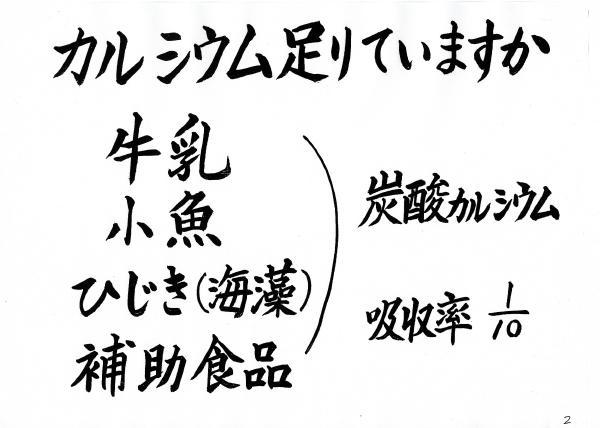 カルシウム足りていますか
牛乳
小魚
ひじき(海藻)
補助食品
炭酸カルシウム
吸収率 1/10
2